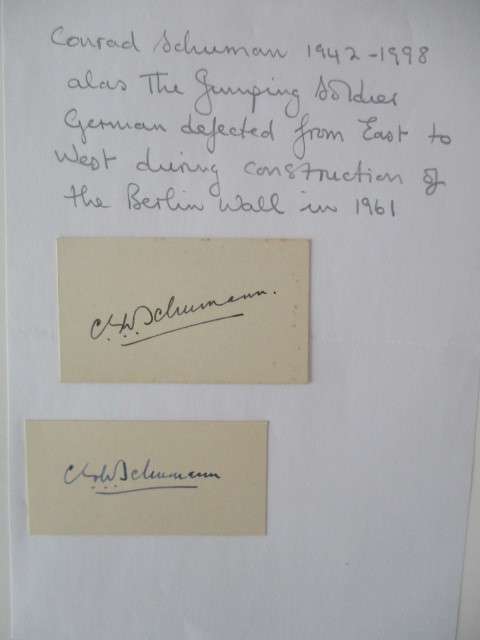 Conrad Schuman 1942-1998
alas The Jumping Soldier
German defected from East to
West during construction of
the Berlin Wall in 1961
Schumann.
Schumann